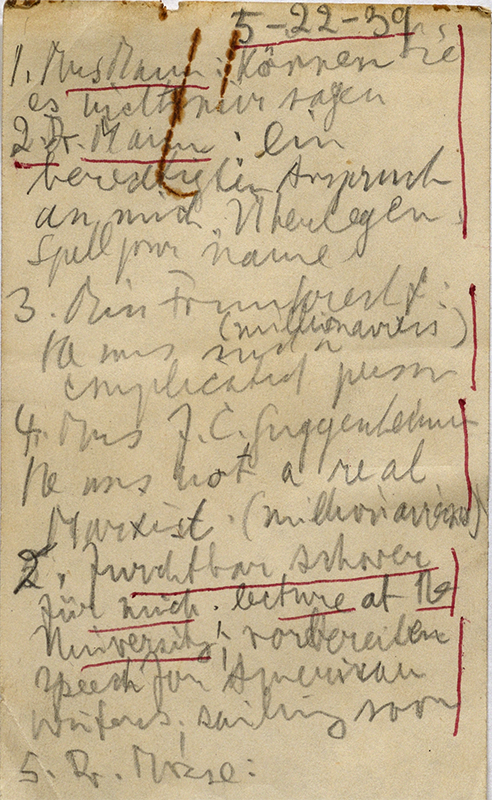 5-22-39
1. Mrs Mann: Können Sie
es nicht mir sagen
2. Dr. Mann: ein
berechtigter Anspruch
an mich. Überlegen.
Spell your name
3. Miss
(millionairess)
He was such a
complicated person
4. Mrs J. C. Guggenheim
He was not a real
Marxist. (millionairess)
2. Furchtbar schwer
für mich. lecture at the
University; vorbereiten
speech for American
writers; sailing soon
5. Dr.